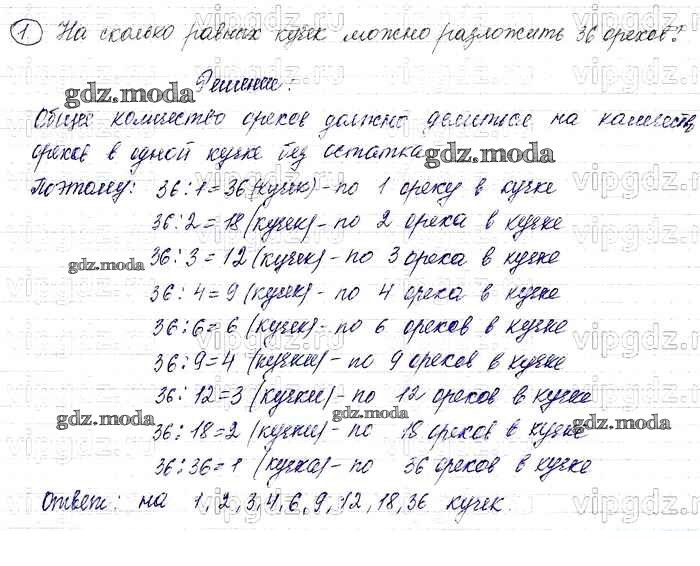 1. На сколько равных кучек можно разложить 36 орехов?
Решение:
gdz.moda
Общее количество орехов должно делиться на количеств
орехов в одной кучке без остатка
gdz.moda
Поэтому: 36:1=36(кучек)-по 1 ореху в кучке
36:2=18(кучек)-по 2 ореха в кучке
36:3=12(кучек)-по 3 ореха в кучке
gdz.moda
36:4=9(кучек)-по 4 ореха в кучке
36:6=6(кучек)-по 6 орехов в кучке
36:9=4(кучки)-по 9 орехов в кучке
36:12=3(кучки)-по 12 орехов в кучке
gdz.moda gdz.moda
36:18=2(кучки)-по 18 орехов в кучке
gdz.moda
36:36=1(кучка)-по 36 орехов в кучке
Ответ: на 1,2,3,4,6,9,12,18,36 кучек.
vipgdz vipgdz
vipgdz
vipgdz
vipgdz
vipgdz
vipgdz